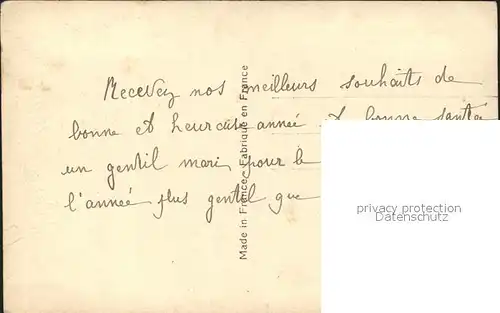 Recevez nos meilleurs souhaits de
bonne et heureuse année et bonne santé
un gentil mari pour le
l'année plus gentil que
Made in France - Fabriqué en France
privacy protection
Datenschutz